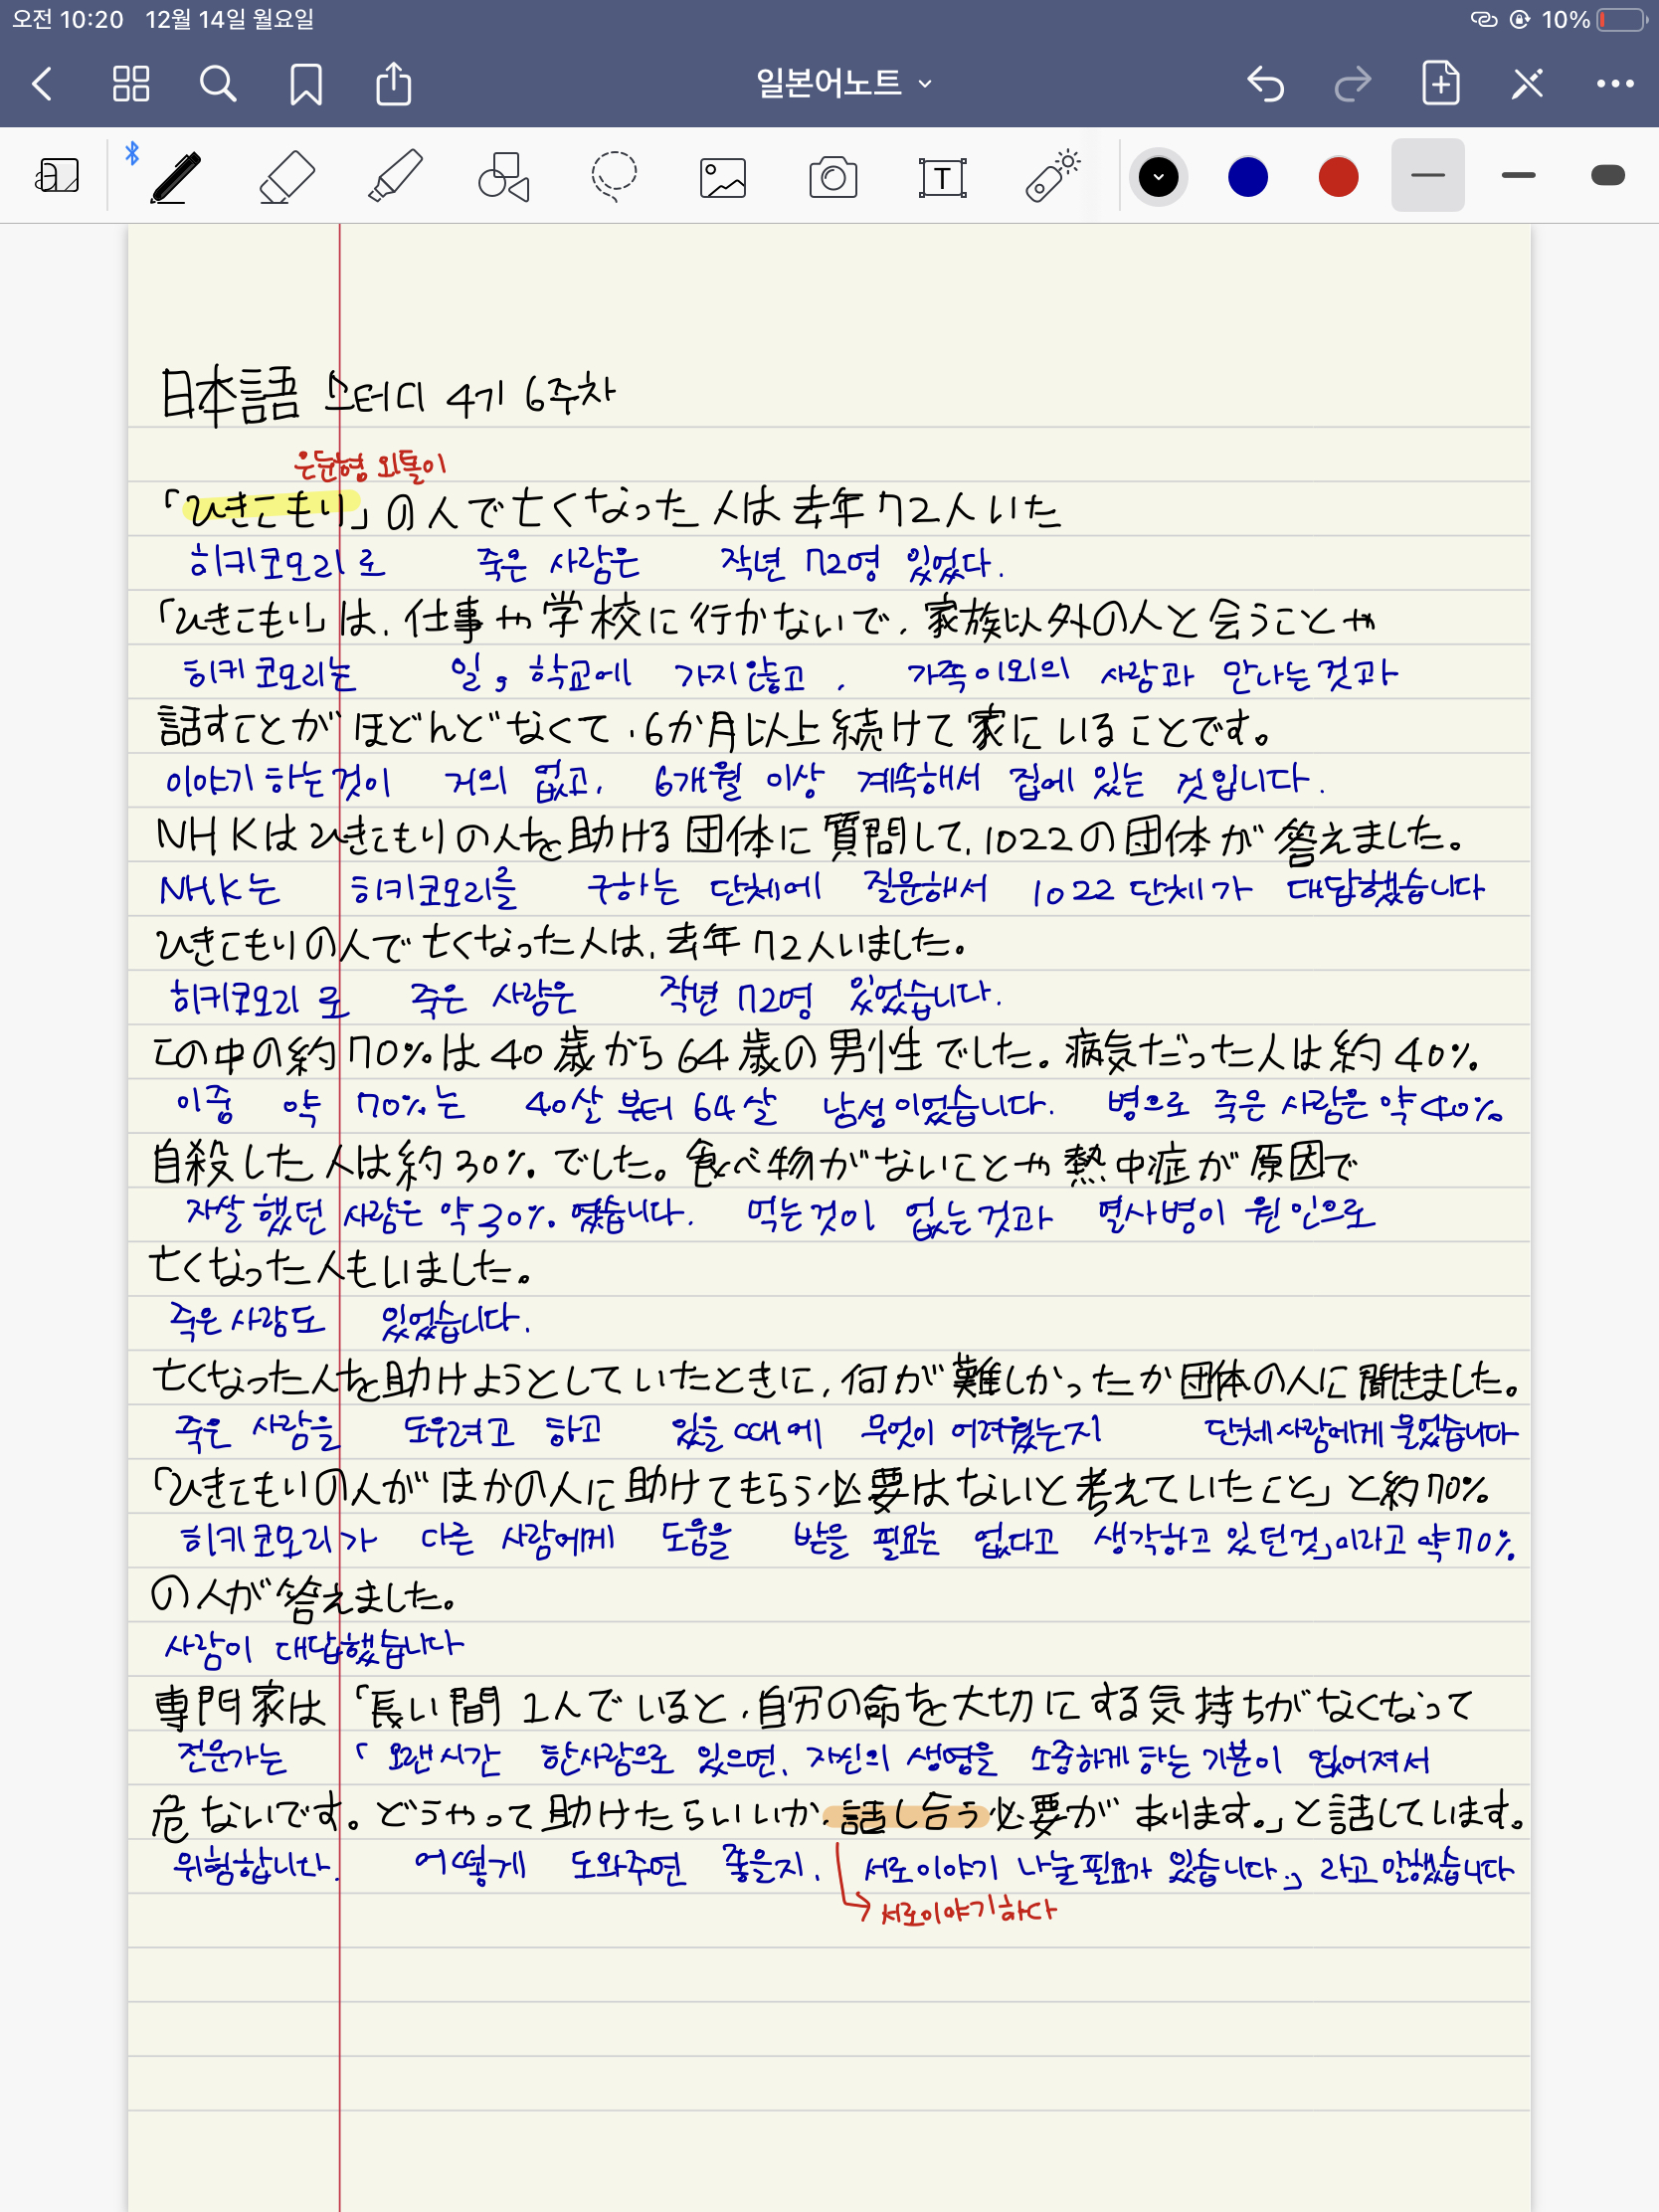 오전 10:20 12월 14일 월요일 10%
일본어노트
日本語 스터디 4기 6주차
은둔형 외톨이
「ひきこもり」の人で亡くなった人は去年72人いた
히키코모리로 죽은 사람은 작년 72명 있었다.
「ひきこもり」は、仕事や学校に行かないで、家族以外の人と会うことや
히키코모리는 일, 학교에 가지않고, 가족이외의 사람과 만나는것과
話すことがほどんどなくて、6か月以上続けて家にいることです。
이야기 하는것이 거의 없고, 6개월 이상 계속해서 집에 있는 것입니다.
NHKはひきこもりの人を助ける団体に質問して、1022の団体が答えました。
NHK는 히키코모리를 구하는 단체에 질문해서 1022 단체가 대답했습니다
ひきこもりの人で亡くなった人は、去年72人いました。
히키코모리로 죽은 사람은 작년 72명 있었습니다.
この中の約70%は40歳から64歳の男性でした。病気だった人は約40%
이중 약 70%는 40살 부터 64살 남성이었습니다. 병으로 죽은 사람은 약40%
自殺した人は約30%でした。食べ物がないことや熱中症が原因で
자살했던 사람은 약30%였습니다. 먹는것이 없는것과 열사병이 원인으로
亡くなった人もいました。
죽은사람도 있었습니다.
亡くなった人を助けようとしていたときに、何が難しかったか団体の人に聞きました。
죽은 사람을 도우려고 하고 있을 때에 무엇이 어려웠는지 단체사람에게 물었습니다
「ひきこもりの人がほかの人に助けてもらう必要はないと考えていたこと」と約70%
히키코모리가 다른 사람에게 도움을 받을 필요는 없다고 생각하고 있던것」이라고 약70%
の人が答えました。
사람이 대답했습니다
専門家は「長い間1人でいると、自分の命を大切にする気持ちがなくなって
전문가는 「오랜시간 한사람으로 있으면, 자신의 생명을 소중하게 하는 기분이 없어져서
危ないです。どうやって助けたらいいか、話し合う必要があります。」と話しています。
위험합니다. 어떻게 도와주면 좋을지, 서로이야기 나눌필요가 있습니다.」 라고 말했습니다
서로이야기하다